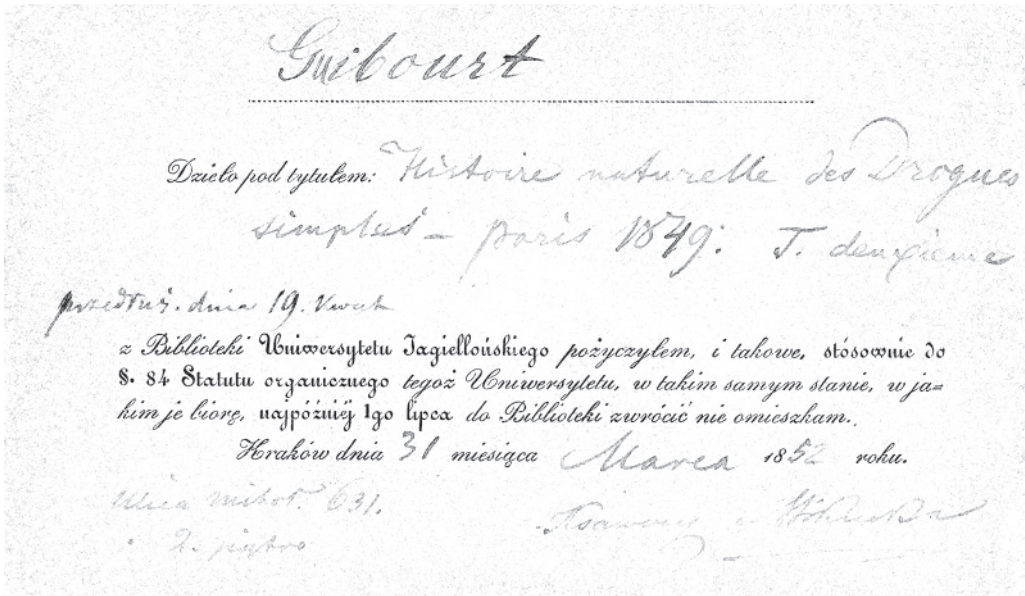 Guibourt
Dzieło pod tytułem: Histoire naturelle des Drogues
simples – Paris 1849: T. deuxieme
przedłuż. dnia 19.
z Biblioteki Uniwersytetu Jagiellońskiego pożyczyłem, i takowe, stósownie do
§. 84 Statutu organicznego tegoż Uniwersytetu, w takim samym stanie, w ja=
kim je biorę, najpóźniéj 1go lipca do Biblioteki zwrócić nie omieszkam.
Kraków dnia 31 miesiąca Marca 1852 roku.
Ulica 631.
2. piętro